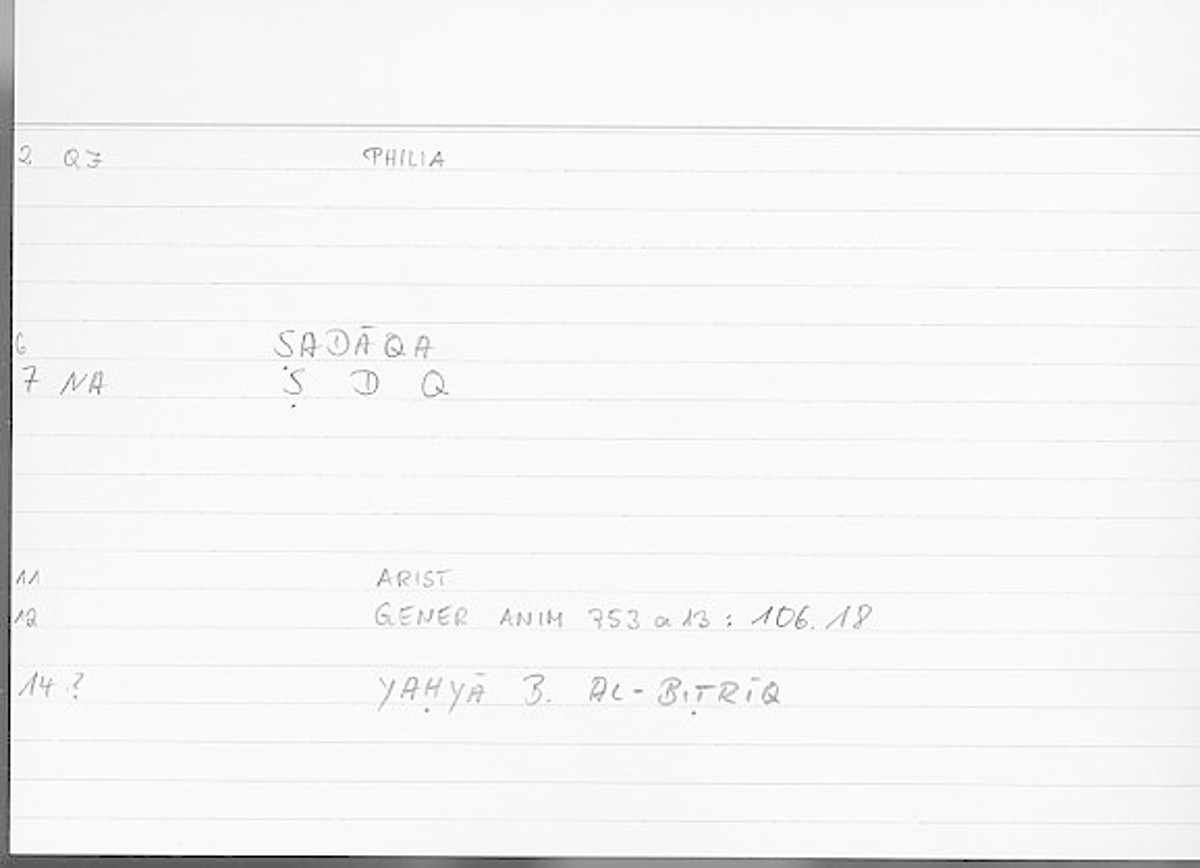 2 QZ PHILIA
6 ṢADĀQA
7 NA Ṣ D Q
11 ARIST
12 GENER ANIM 753 a 13 : 106.18
14 ? YAḤYĀ B. AL-BIṬRĪQ